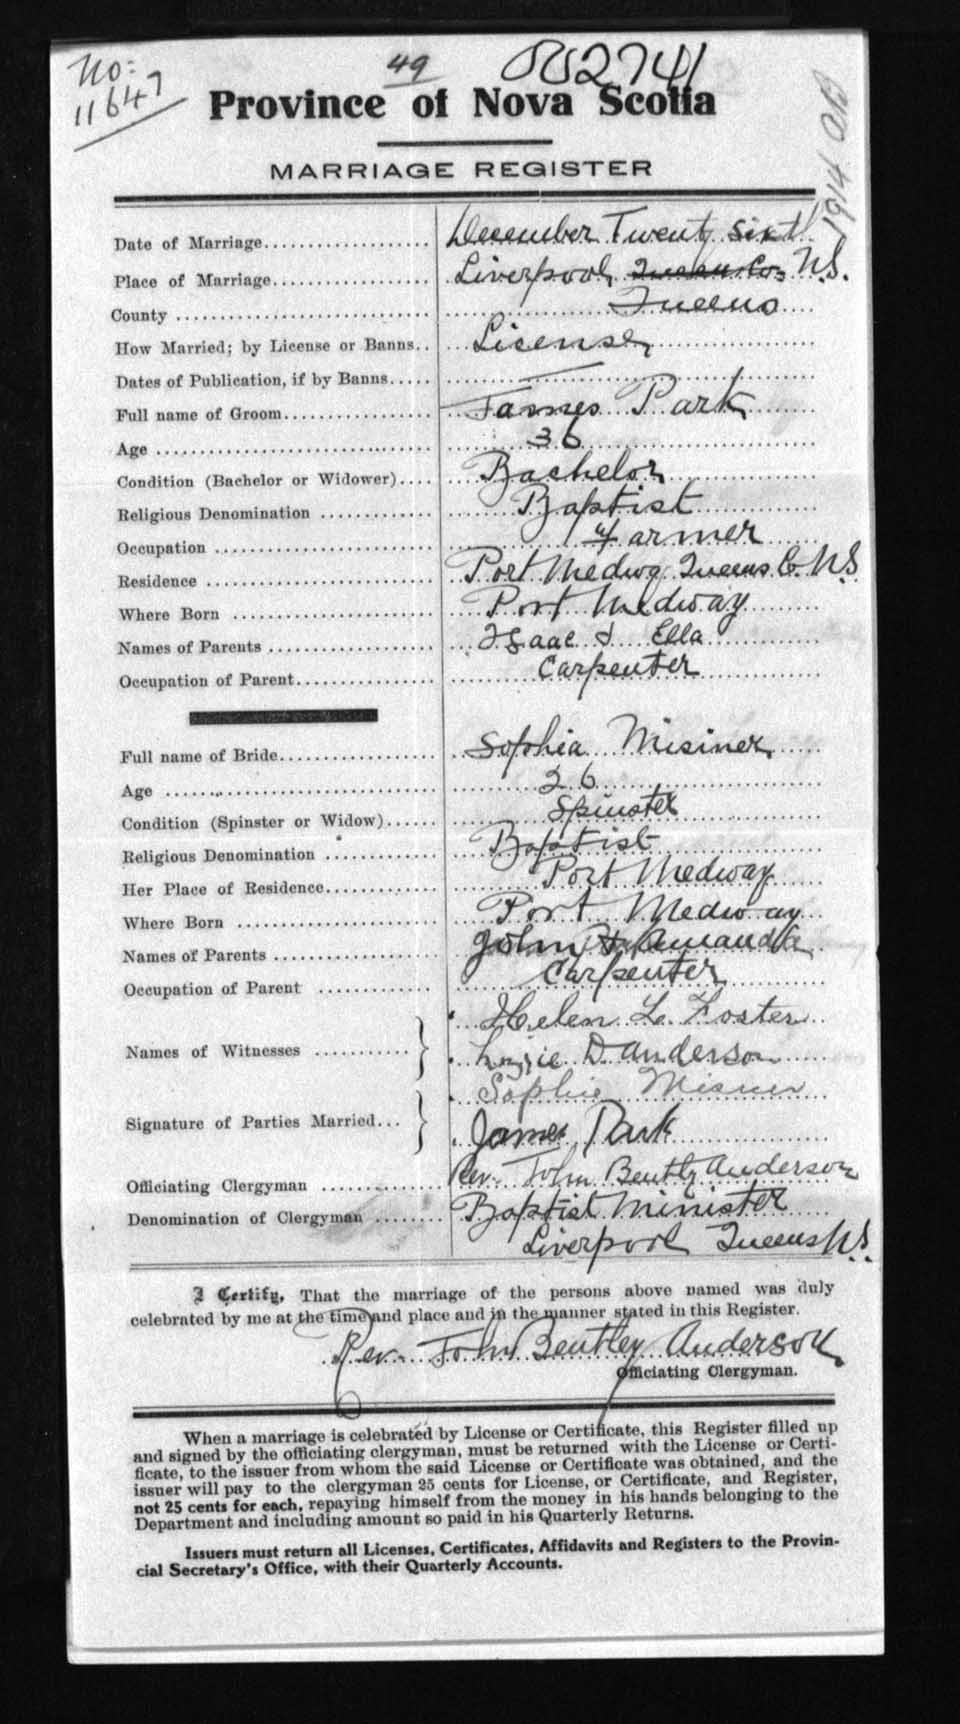 No:
11647
49
002741
1914
Province of Nova Scotia
MARRIAGE REGISTER
Date of Marriage.................... December Twenty Sixth
Place of Marriage................... Liverpool, Queens Co. N.S.
County ............................. Queens
How Married; by License or Banns.. License
Dates of Publication, if by Banns.....
Full name of Groom.................. James Park
Age ................................ 36
Condition (Bachelor or Widower).... Bachelor
Religious Denomination ............. Baptist
Occupation ......................... Farmer
Residence .......................... Port Medwy Queens Co. N.S
Where Born ......................... Port Medway
Names of Parents ................... Isaac & Ella
Occupation of Parent................ Carpenter
Full name of Bride.................. Sophia Misiner
Age ................................ 26
Condition (Spinster or Widow)...... Spinster
Religious Denomination ............. Baptist
Her Place of Residence............. Port Medway
Where Born ......................... Port Medway
Names of Parents ................... John & Amanda
Occupation of Parent ............... Carpenter
Names of Witnesses ........... } Helen L. Foster
Lizzie D. Anderson
Signature of Parties Married... } Sophie Misner
James Park
Officiating Clergyman .............. Rev. John Bently Anderson
Denomination of Clergyman ........ Baptist Minister
Liverpool Queens N.S.
I Certify, That the marriage of the persons above named was duly
celebrated by me at the time and place and in the manner stated in this Register.
Rev. John Bentley Anderson
Officiating Clergyman.
When a marriage is celebrated by License or Certificate, this Register filled up
and signed by the officiating clergyman, must be returned with the License or Certi-
ficate, to the issuer from whom the said License or Certificate was obtained, and the
issuer will pay to the clergyman 25 cents for License, or Certificate, and Register,
not 25 cents for each, repaying himself from the money in his hands belonging to the
Department and including amount so paid in his Quarterly Returns.
Issuers must return all Licenses, Certificates, Affidavits and Registers to the Provin-
cial Secretary's Office, with their Quarterly Accounts.